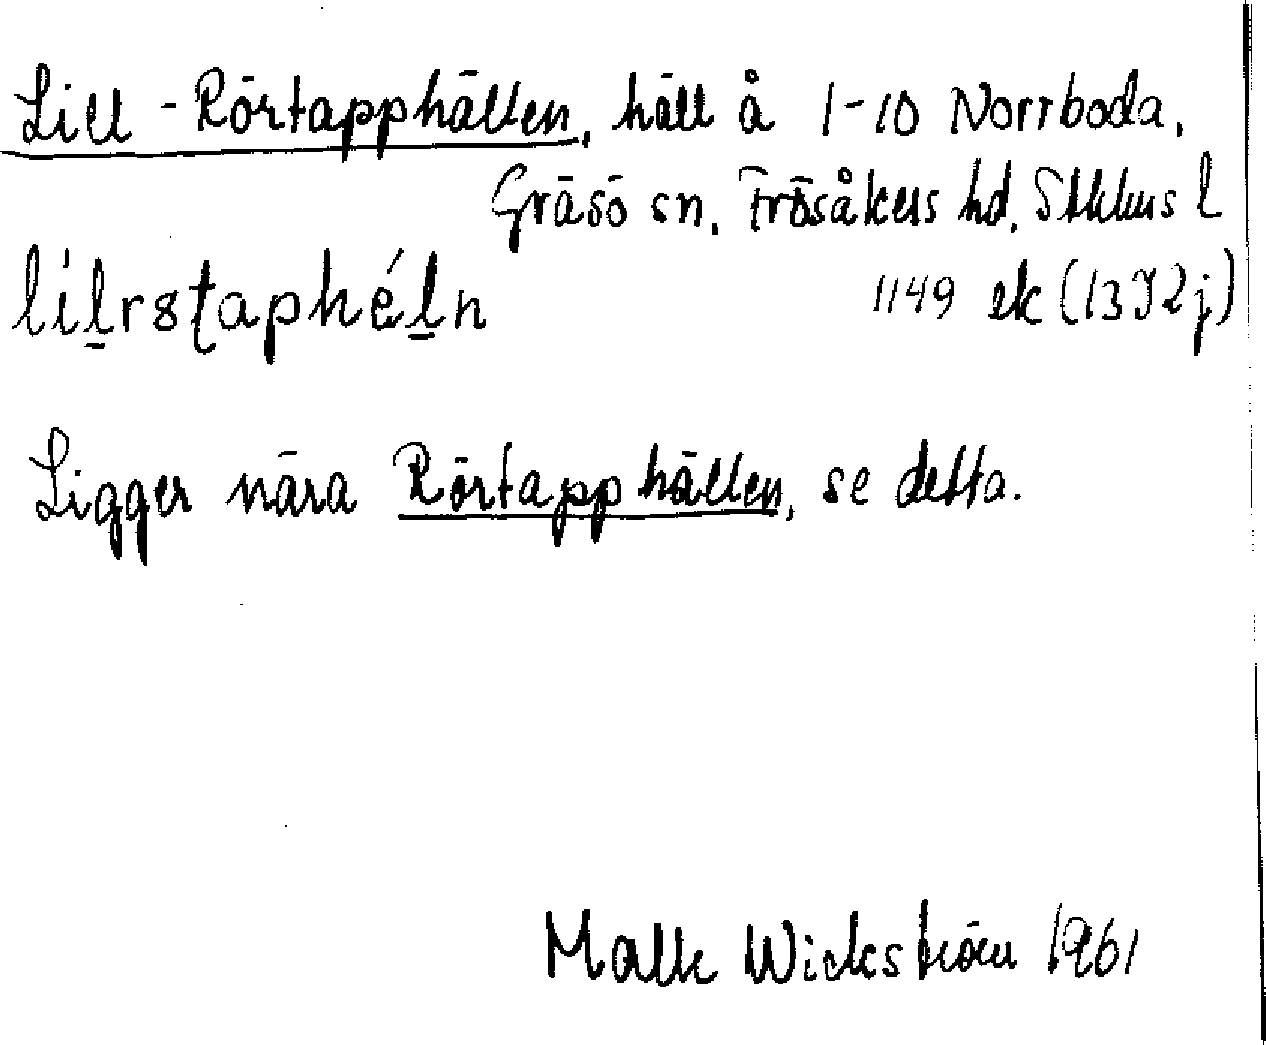 Lill-Rörtapphällen, häll å 1-10 Norrboda,
Gräsö sn, Frösåkers hd, Sthlms l
lílrstaphéln 1149 ek (13I2j)
Ligger nära Rörtapphällen, se detta.
Wickström 1961